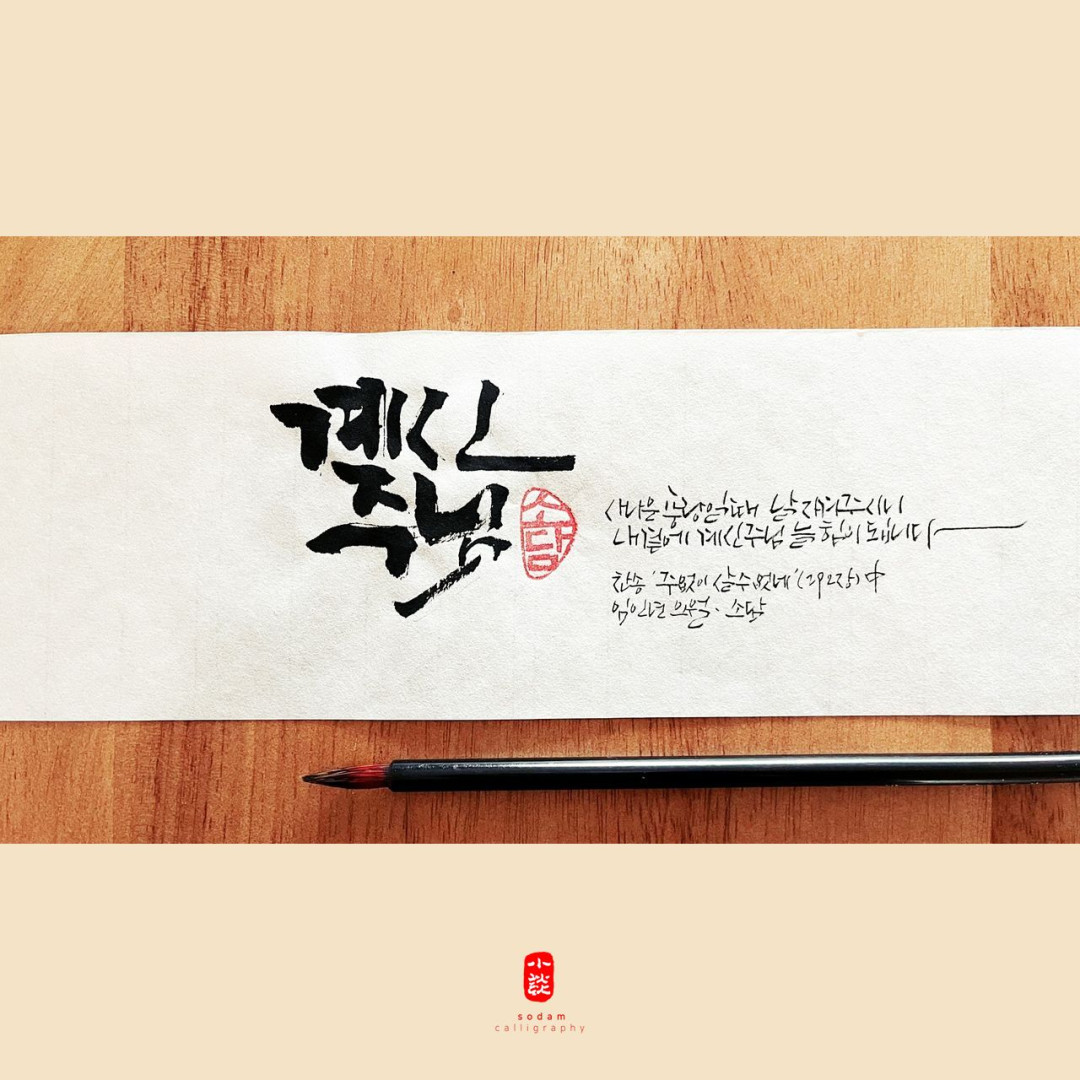 계신
주님
소담
사나운 풍랑일때 날 지켜주시니
내곁에 계신주님 늘 힘이 됩니다
찬송 '주없이 살수없네' (292장) 中
임인년 의월 · 소담
小談
sodam
calligraphy